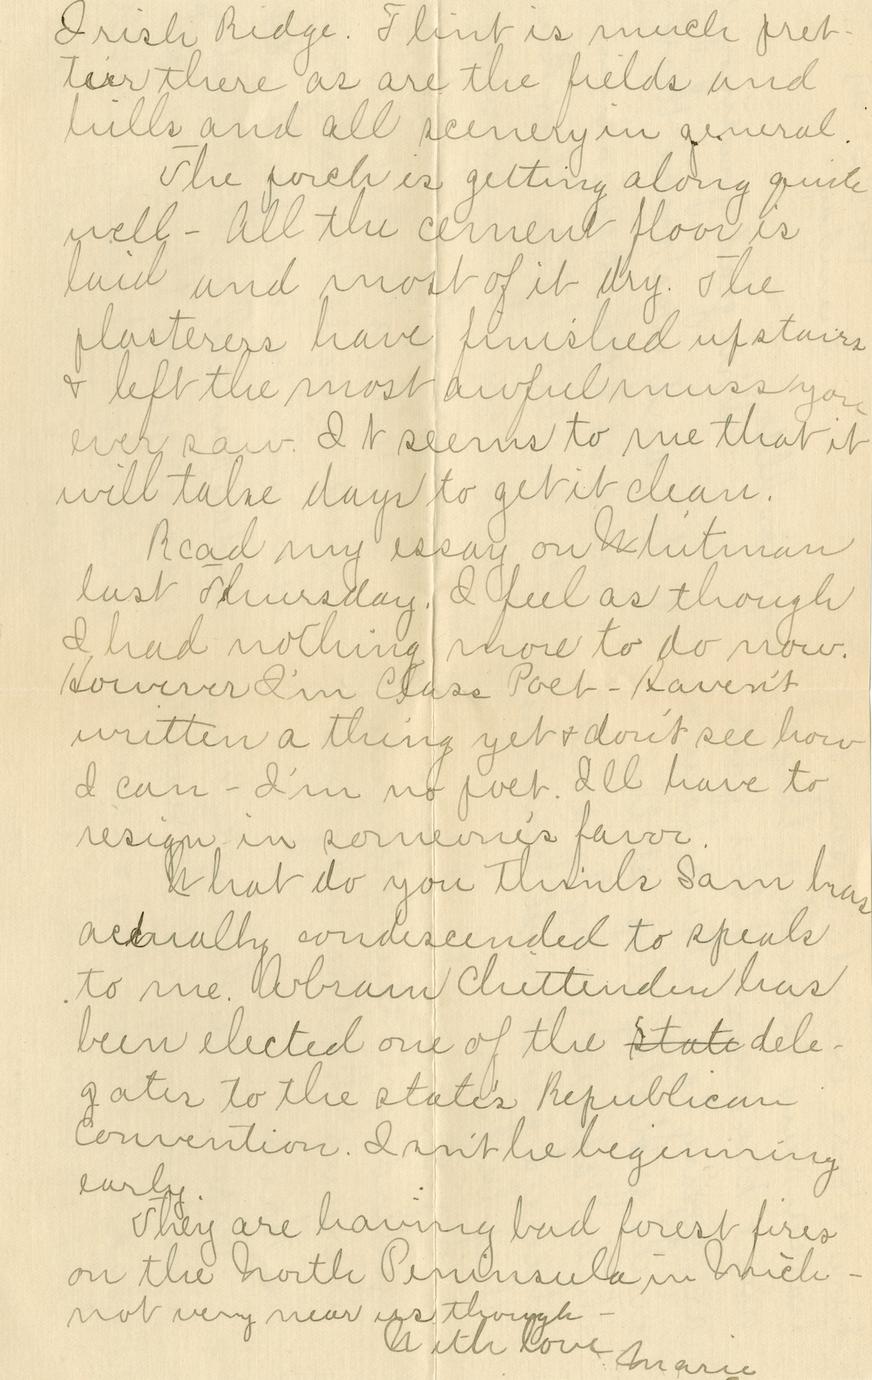 Irish Ridge. Flint is much pret-
tier there as are the fields and
hills and all scenery in general.
The porch is getting along quite
well - All the cement floor is
laid and most of it dry. The
plasterers have finished upstairs
& left the most awful muss you
ever saw. It seems to me that it
will take days to get it clean.
Read my essay on Whitman
last Thursday. I feel as though
I had nothing more to do now.
However I'm Class Poet - Haven't
written a thing yet & don't see how
I can - I'm no poet. I'll have to
resign in someone's favor.
What do you think Sam has
actually condiscended to speak
to me. Abram Chittenden has
been elected one of the State dele-
gates to the state's Republican
Convention. Isn't he beginning
early.
They are having bad forest fires
on the North Peninsula in Mich -
not very near us though -
With love
Marie